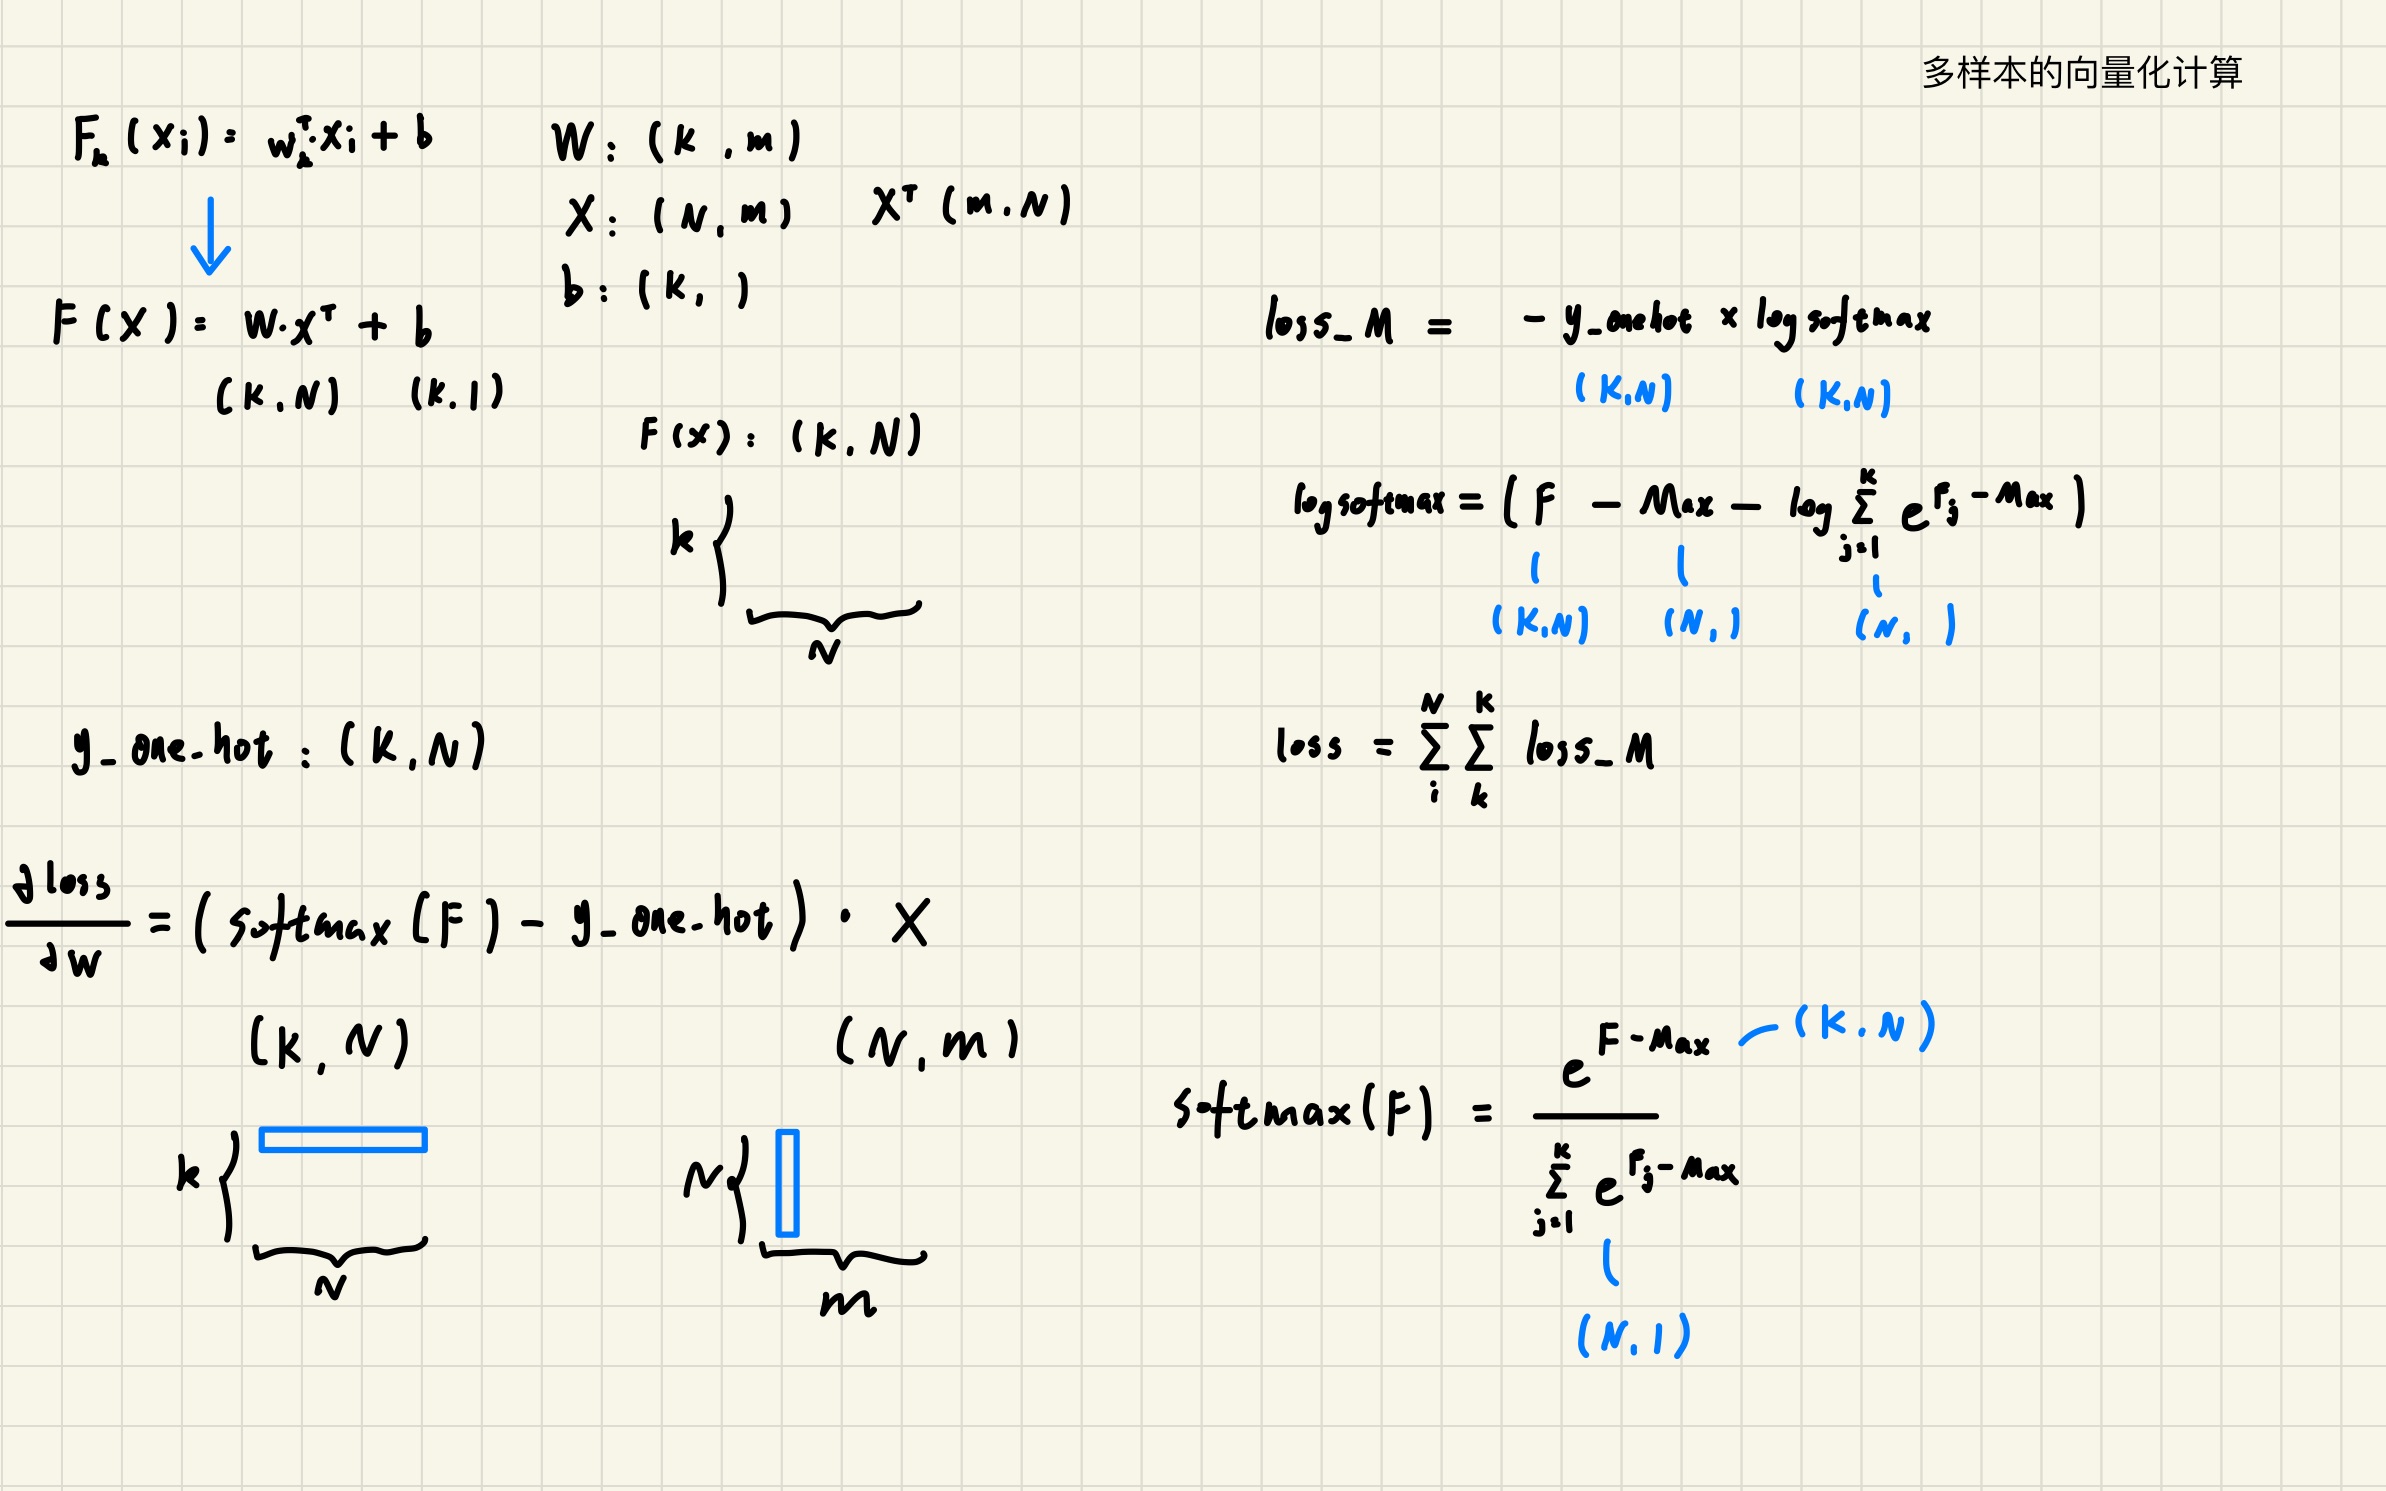 多样本的向量化计算
F_k(x_i) = w_k^T · x_i + b
W: (k, m)
X: (N, m) X^T (m, N)
b: (k, )
F(X) = W·X^T + b
(k, N) (k, 1)
F(x): (k, N)
k
N
y_one-hot : (k, N)
∂loss/∂w = (softmax(F) - y_one-hot) · X
(k, N) (N, m)
k
N
N
m
loss_M = - y_onehot × logsoftmax
(k,N) (k,N)
logsoftmax = (F - Max - log ∑_{j=1}^{k} e^{F_j - Max})
(k,N) (N,) (N, )
loss = ∑_i^N ∑_k^k loss_M
softmax(F) = e^{F-Max} / ∑_{j=1}^{k} e^{F_j - Max}
(k, N)
(N, 1)